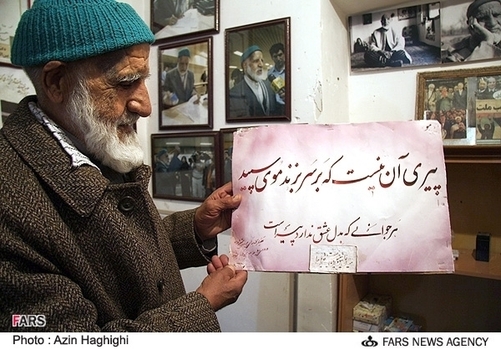 پیری آن نیست که بر سر بزند موی سپید
هر جوانی که بدل عشق ندارد پیر است
FARS
Photo : Azin Haghighi
FARS NEWS AGENCY